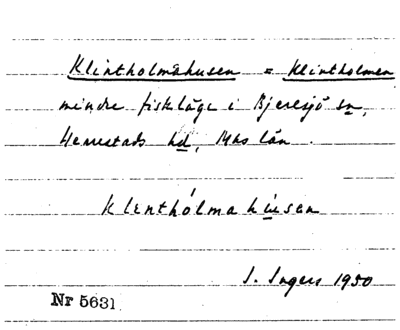 Klintholmahusen = Klintholmen
mindre fiskläge i Bjeresjö sn,
Herrestads hd, Mhs län.
Klenthólmahúsen
I. Ingers 1950
Nr 5631